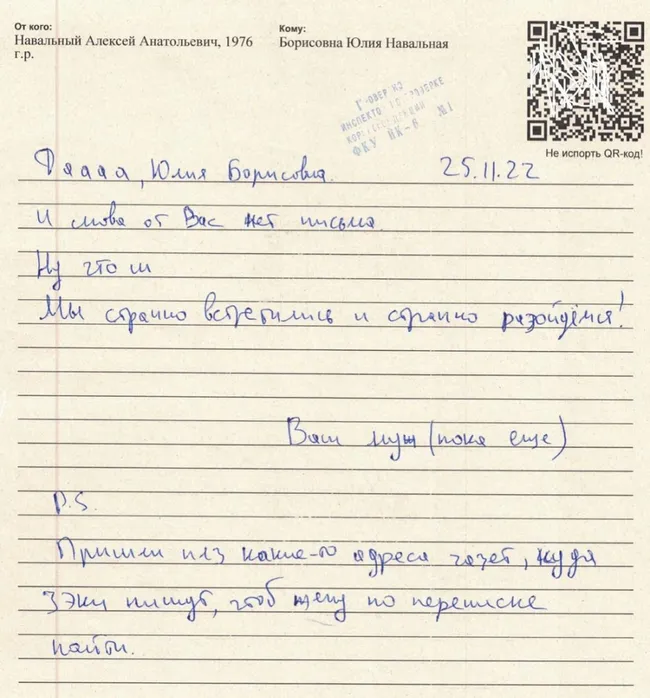 От кого:
Навальный Алексей Анатольевич, 1976
г.р.
Кому:
Борисовна Юлия Навальная
Не испорть QR-код!
ИНСПЕКТО
ФКУ ИК-6 №1
Дяааа, Юлия Борисовна. 25.11.22
И снова от Вас нет письма
Ну что ш
Мы странно встретились и странно разойдёмся!
Ваш муж (пока еще)
P.S.
Пришли плз какие-то адреса газет, куда
зэки пишут, чтоб жену по переписке
найти.